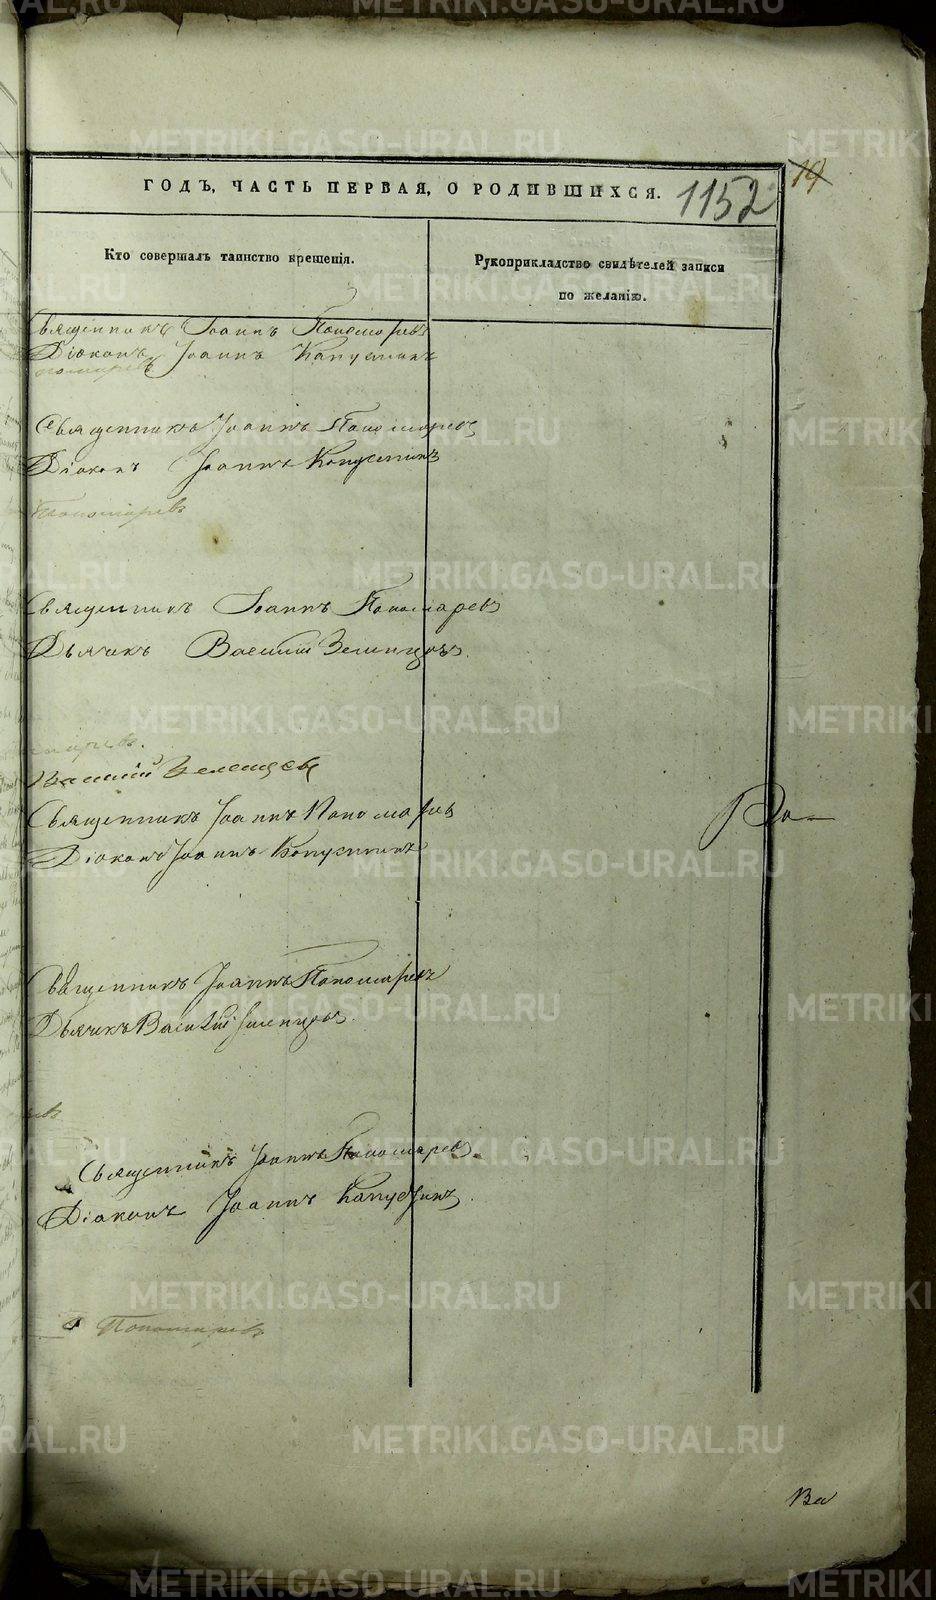 ГОДЪ, ЧАСТЬ ПЕРВАЯ, О РОДИВШИХСЯ.
1152
19
Кто совершалъ таинство крещенія.
Рукоприкладство свидѣтелей записи
по желанію.
Священникъ Іоаннъ Пономаревъ
Діаконъ Іоаннъ Капустинъ
Священникъ Іоаннъ Пономаревъ
Діаконъ Іоаннъ Капустинъ
Пономаревъ
Священникъ Іоаннъ Пономаревъ
Дьячекъ Василій Зеленцовъ
Василій Зеленцовъ
Священникъ Іоаннъ Пономаревъ
Діаконъ Іоаннъ Капустинъ
Священникъ Іоаннъ Пономаревъ
Дьячекъ Василій Зеленцовъ
Священникъ Іоаннъ Пономаревъ
Діаконъ Іоаннъ Капустинъ
Пономаревъ
METRIKI.GASO-URAL.RU